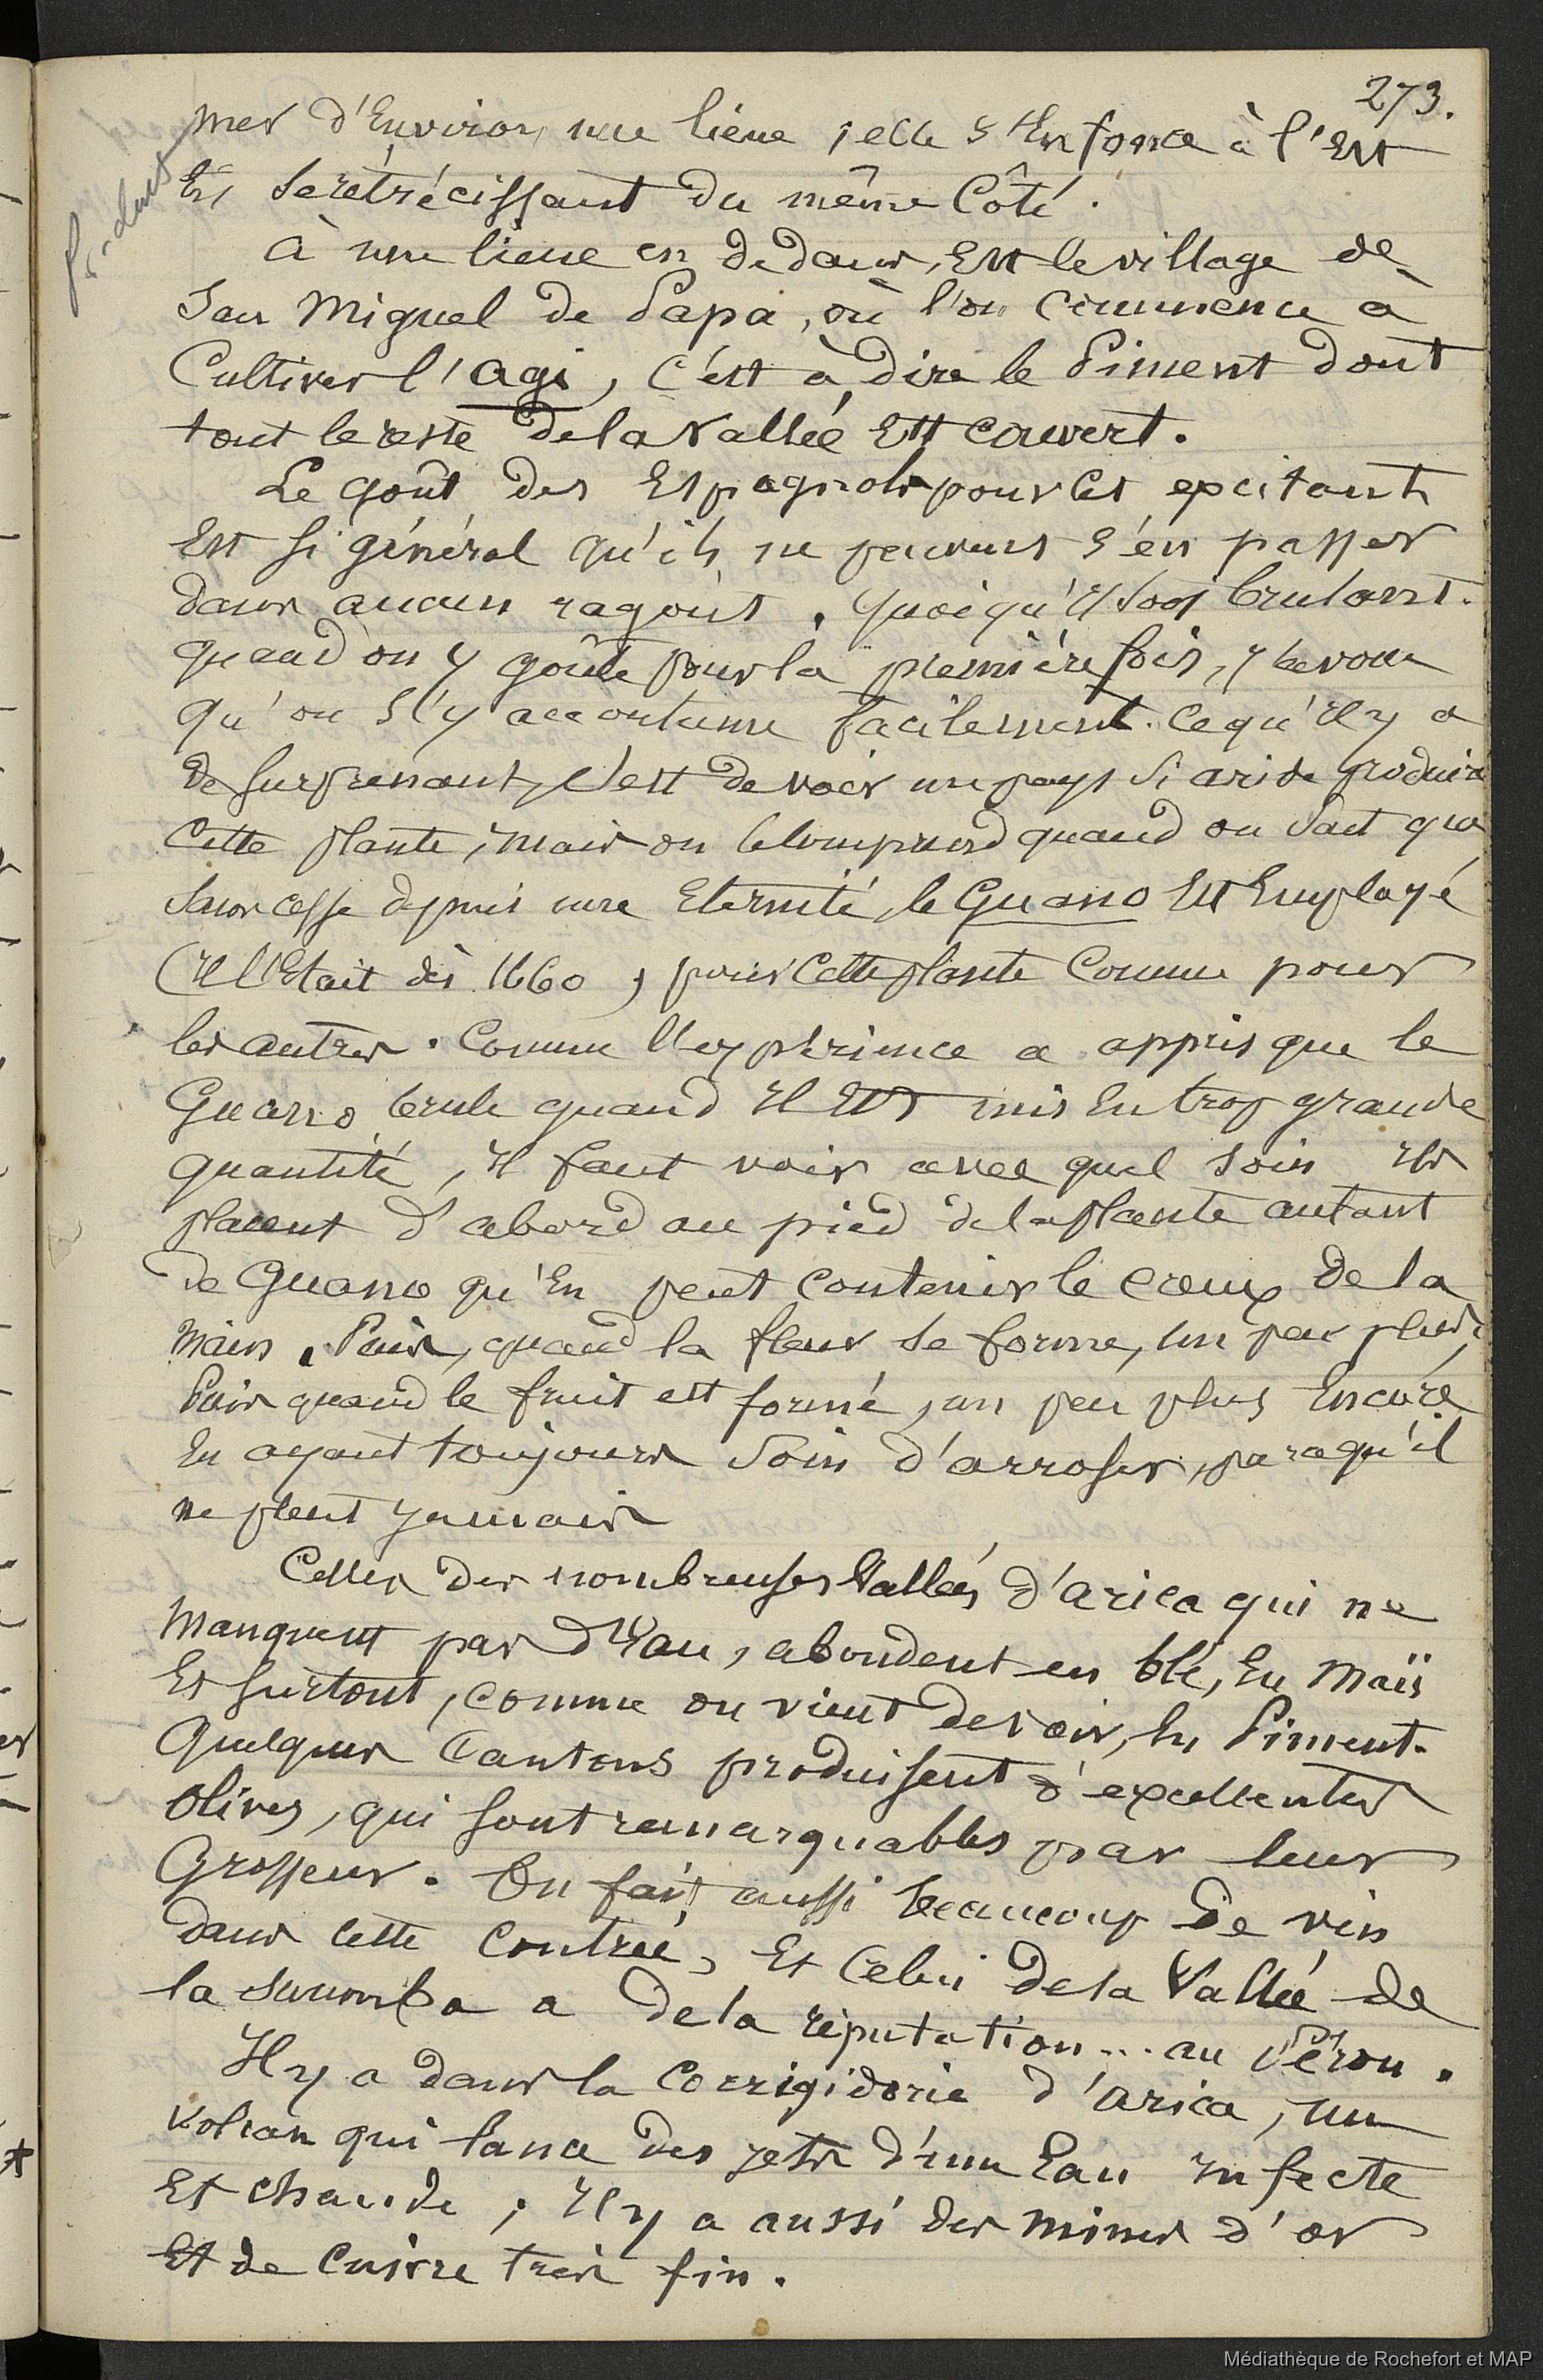 273.
Produits
mer d'Environ une lieue ; elle s'Enfonce à l'Est
En se rétrécissant du même Côté.
à une lieue en dedans, Est le village de
San Miguel de Sapa, où l'on commence à
Cultiver l'agi, C'est à dire le Piment dont
tout le reste de la Vallée Est couvert.
Le goût des Espagnols pour ces excitants
Est si général qu'ils ne peuvent s'en passer
dans aucun ragoût. quoiqu'Il soit brulant.
quand on y goûte pour la première fois, J'avoue
qu'on s'y accoutume facilement. Ce qu'Il y a
de surprenant, c'est de voir un pays si aride produire
Cette plante, mais on le comprend quand on sait que
sans cesse depuis une Eternité, le Guano Est Employé
(Il l'Etait dès 1660) pour Cette plante Comme pour
les autres. Comme l'expérience a appris que le
Guano brule quand Il Est mis En trop grande
quantité, Il faut voir avec quel soin Ils
placent d'abord au pied de la plante autant
de Guano qu'En peut Contenir le creux de la
main. Puis, quand la fleur se forme, un peu plus,
Puis quand le fruit est formé, un peu plus Encore
En ayant toujours soin d'arroser, parcequ'il
ne pleut Jamais
Celles des nombreuses Vallées d'arica qui ne
Manquent pas d'Eau, abondent en blé, En Maïs
Et surtout, comme on vient de voir, En Piment.
Quelques Cantons produisent d'excellentes
Olives, qui sont remarquables par leur
Grosseur. On fait aussi beaucoup de vin
dans cette Contrée, Et Celui de la Vallée de
la a de la réputation... au Pérou.
Il y a dans la Corrigidorie d'arica, un
Volcan qui lance des jets d'une Eau Infecte
Et chaude ; Il y a aussi des mines d'or
Et de Cuivre très fin.
Médiathèque de Rochefort et MAP